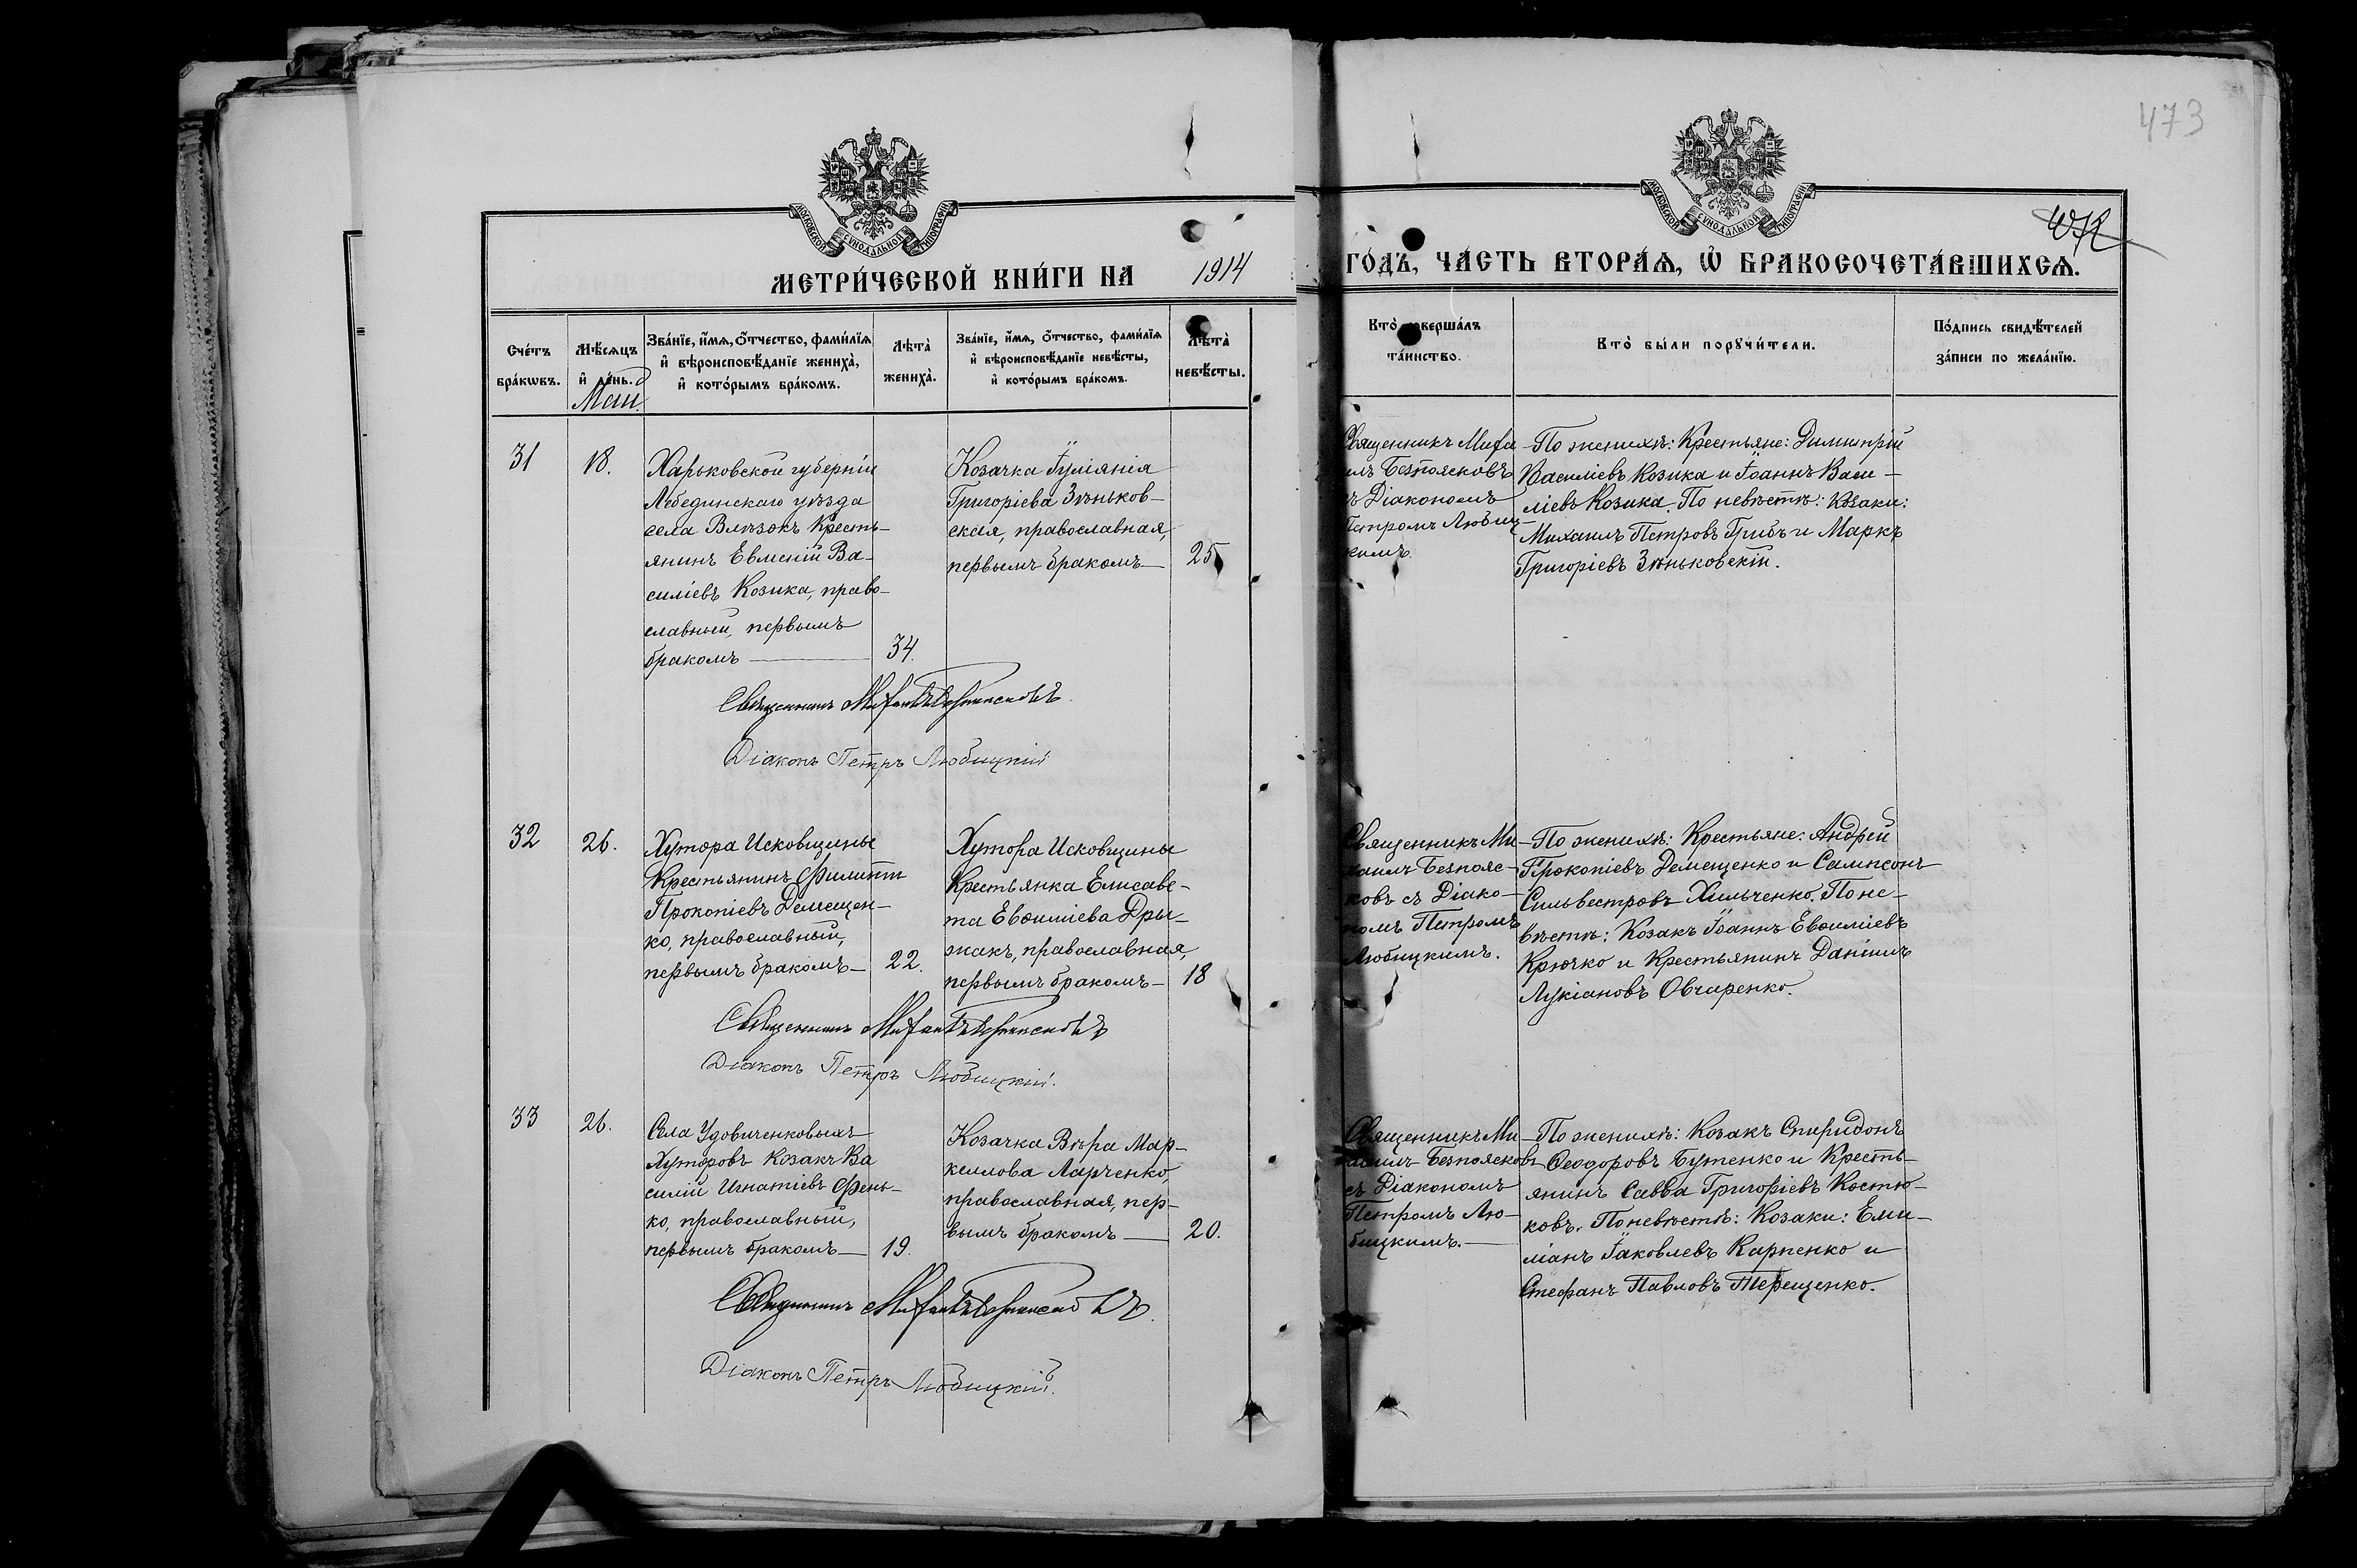 473
МОСКОВСКОЙ СѴНОДАЛЬНОЙ ТИПОГРАФІИ
МОСКОВСКОЙ СѴНОДАЛЬНОЙ ТИПОГРАФІИ
МЕТРИ́ЧЕСКОЙ КНИ́ГИ НА 1914 ГО́ДЪ, ЧА́СТЬ ВТОРА́Я, Ѡ БРАКОСОЧЕТА́ВШИХСЯ.
Сче́тъ бра́кѡвъ.
Мѣ́сяцъ и де́нь.
Маи
Зва́нїе, и́мя, ѻ́тчество, фами́лїя и вѣроисповѣ́данїе жениха̀, и кото́рымъ бра́комъ.
Лѣта̀ жениха̀.
Зва́нїе, и́мя, ѻ́тчество, фами́лїя и вѣроисповѣ́данїе невѣ́сты, и кото́рымъ бра́комъ.
Лѣта̀ невѣ́сты.
Кто̀ соверша́лъ та́инство.
Кто̀ бы́ли порꙋчи́тели.
По́дпись свидѣ́телей за́писи по жела́нїю.
31
18.
Харьковской губерніи
Лебединскаго уѣзда
села Влѣзокъ Кресть-
янинъ Евменій Ва-
силіевъ Козика, право-
славный, первымъ
бракомъ
34.
Козачка Іуліянія
Григоріева Зѣньков-
ская, православная,
первымъ бракомъ
25
Священникъ Миха
илъ Безпоясковъ
съ Діакономъ
Петромъ Любиц-
кимъ.
По женихѣ: Крестьяне: Димитрій
Василіевъ Козика и Іоаннъ Васи-
ліевъ Козика. По невѣстѣ: Козаки:
Михаилъ Петровъ Грибъ и Маркъ
Григоріевъ Зѣньковскій.
Священникъ Михаилъ Безпоясковъ
Діаконъ Петръ Любицкій
32
26.
Хутора Исковщины
Крестьянинъ Филиппъ
Прокопіевъ Демещен-
ко, православный,
первымъ бракомъ
22.
Хутора Исковщины
Крестьянка Елисаве-
та Евѳиміева Дры-
жакъ, православная,
первымъ бракомъ
18
Священникъ Ми-
хаилъ Безпояс-
ковъ съ Діако-
номъ Петромъ
Любицкимъ.
По женихѣ: Крестьяне: Андрей
Прокопіевъ Демещенко и Сампсонъ
Сильвестровъ Хильченко. По не-
вѣстѣ: Козакъ Іоаннъ Евѳиміевъ
Крючко и Крестьянинъ Даніилъ
Лукіановъ Овчаренко.
Священникъ Михаилъ Безпоясковъ
Діаконъ Петръ Любицкій.
33
26.
Села Удовиченковыхъ
Хуторовъ Козакъ Ва
силій Игнатіевъ Фень-
ко, православный,
первымъ бракомъ
19.
Козачка Вѣра Мар-
келлова Ларченко,
православная, пер-
вымъ бракомъ
20.
Священникъ Ми-
хаилъ Безпоясковъ
съ Діакономъ
Петромъ Лю-
бицкимъ.
По женихѣ: Козакъ Спиридонъ
Ѳеодоровъ Бутенко и Кресть-
янинъ Савва Григоріевъ Костю-
ковъ. По невѣстѣ: Козаки: Еми-
ліанъ Іаковлевъ Карпенко и
Стефанъ Павловъ Терещенко.
Священникъ Михаилъ Безпоясковъ.
Діаконъ Петръ Любицкій.